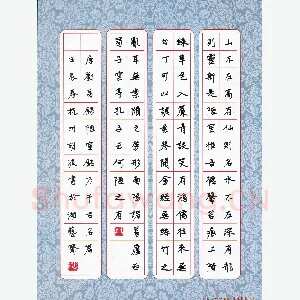 山不在高有仙則名水不在深有龍
則靈斯是陋室惟吾德馨苔痕上階
綠草色入簾青談笑有鴻儒往來無
白丁可以調素琴閱金經無絲竹之
亂耳無案牘之勞形南陽諸葛廬西
蜀子雲亭孔子云何陋之有
唐劉禹錫陋室銘乃千古名篇
杭州